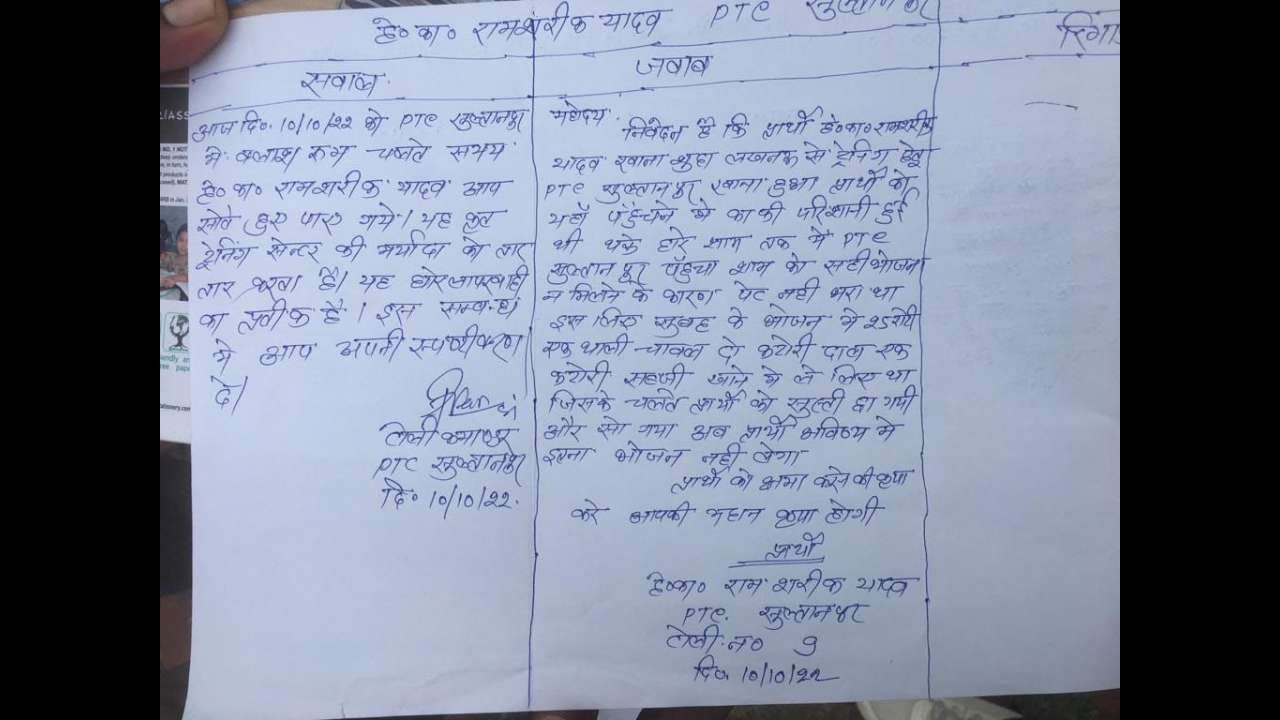 हे०का० रामशरीक यादव PTC सुल्तानपुर
सवाल
जवाब
आज दि० 10/10/22 को PTC सुल्तानपुर
में क्लास रूम चलते समय
हे०का० रामशरीक यादव आप
सोते हुए पाए गये। यह कृत
ट्रेनिंग सेन्टर की मर्यादा को तार
तार करता है। यह घोर लापरवाही
का प्रतीक है। इस सम्बन्ध
में आप अपनी स्पष्टीकरण
दे।
टोली कमाण्डर
PTC सुल्तानपुर
दि० 10/10/22.
महोदय
निवेदन है कि प्रार्थी हे०का० रामशरीक
यादव रवाना शुदा लखनऊ से ट्रेनिंग हेतु
PTC सुल्तानपुर रवाना हुआ प्रार्थी को
यहाँ पहुँचने में काफी परेशानी हुई
थी थके हारे शाम तक में PTC
सुल्तानपुर पहुँचा शाम को सही भोजन
न मिलने के कारण पेट नही भरा था
इस लिए सुबह के भोजन मे 25 रोटी
एक थाली चावल दो कटोरी दाल एक
कटोरी सब्जी खाने मे ले लिए था
जिसके चलते प्रार्थी को सुस्ती छा गयी
और सो गया अब प्रार्थी भविष्य मे
इतना भोजन नही लेगा
प्रार्थी को क्षमा करने की कृपा
करे आपकी महान कृपा होगी
प्रार्थी
हे०का० राम शरीक यादव
PTC. सुल्तानपुर
टोली न० 9
दि० 10/10/22